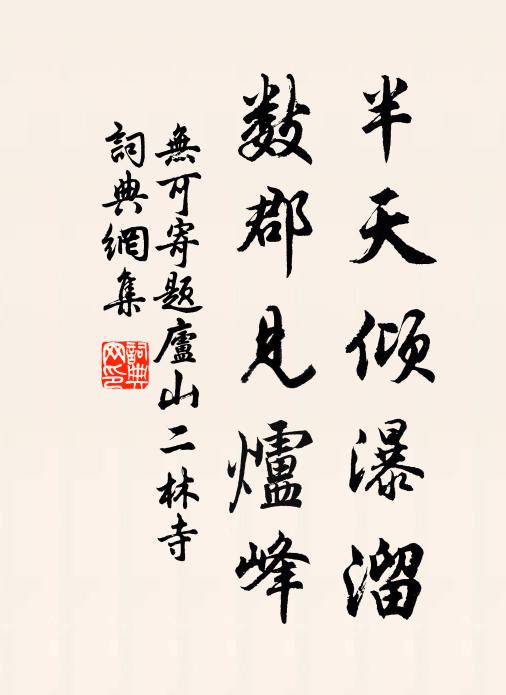 半天倾瀑溜
数郡見爐峰
無可寄题廬山二林寺
詞典網集
詞典網印